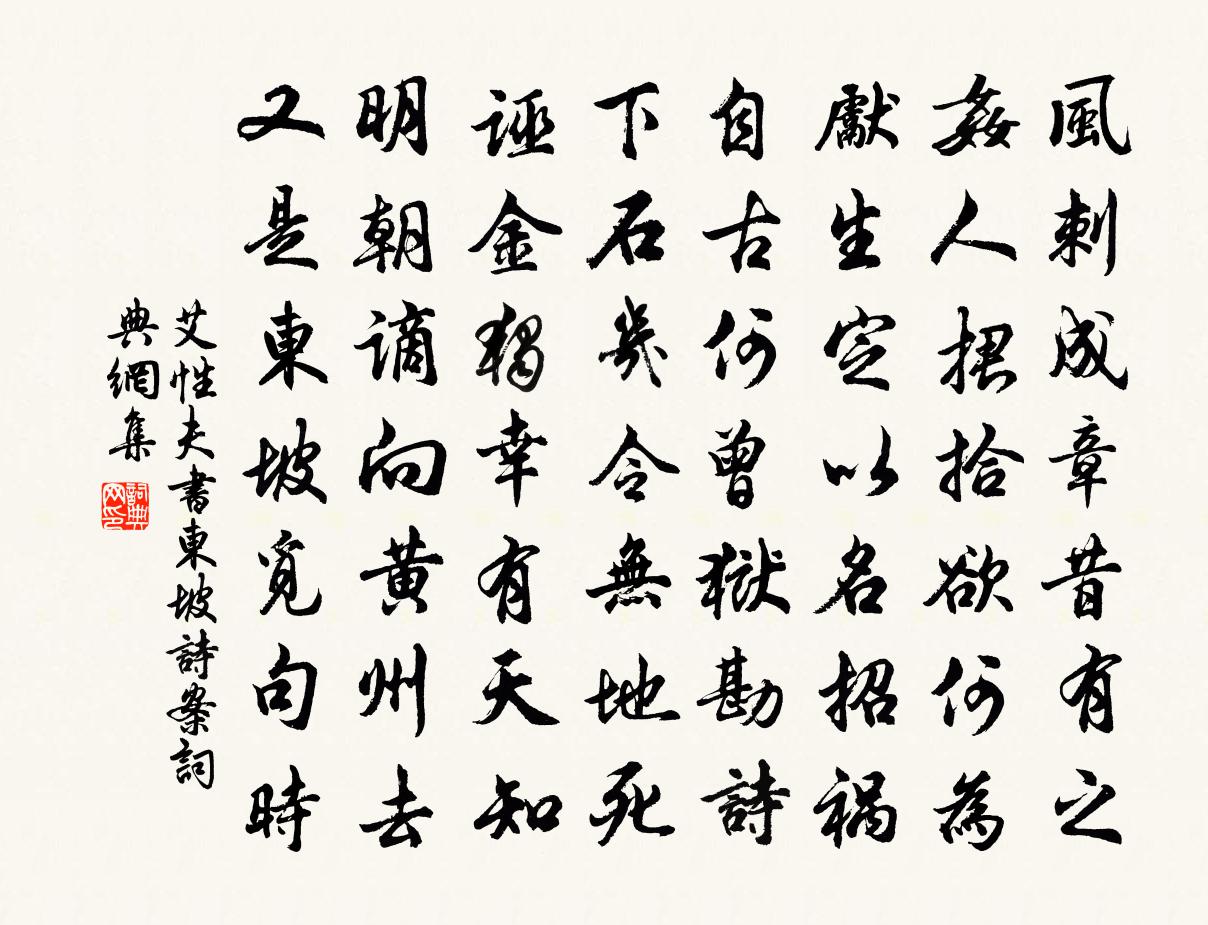 風刺成章昔有之
姦人捃拾欲何為
獻生定以名招禍
自古何曾獄勘詩
下石幾令無地死
誣金獨幸有天知
明朝謫向黃州去
又是東坡覓句時
艾性夫書東坡詩案詞
典網集
詞典
网印